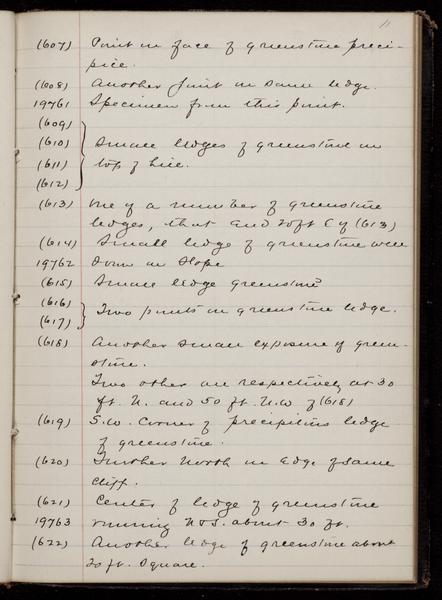 11
(607) Point on face of greenstone preci-
pice.
(608) Another point on same ledge.
19761 Specimen from this point.
(609)
(610) Small ledges of greenstone on
(611) top of hill.
(612)
(613) one of a number of greenstone
ledges, that and 20ft E of (613)
(614) Small ledge of greenstone well
19762 down on slope
(615) Small ledge greenstone
(616)
(617) Two points on greenstone ledge.
(618) Another small exposure of green-
stone.
Two other are respectively at 30
ft. N. and 50 ft. N.W of (618)
(619) S.W. Corner of precipitous ledge
of greenstone.
(620) Further North on edge of same
cliff.
(621) Center of ledge of greenstone
19763 running N & S. about 30 ft.
(622) Another ledge of greenstone about
20 ft. square.